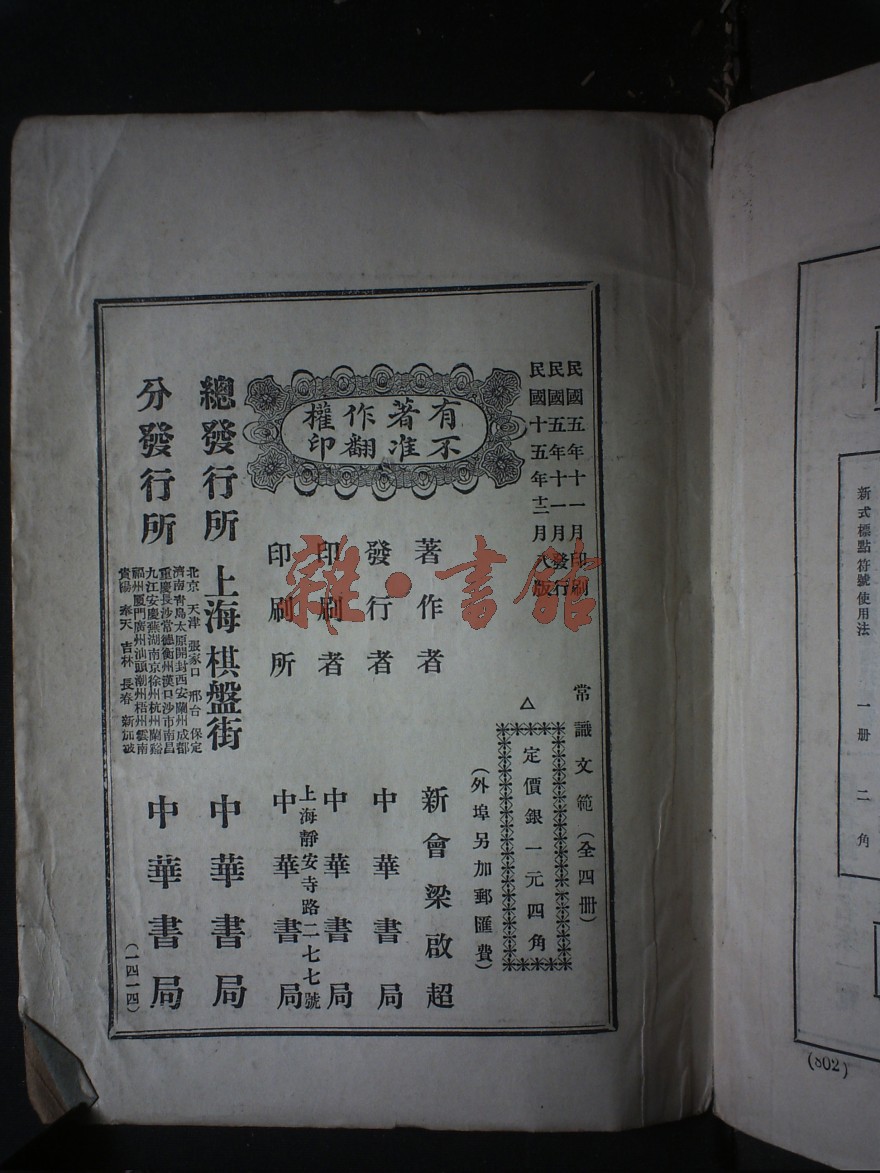 民國五年十一月印刷
民國五年十一月發行
民國十五年十二月八版
常識文範（全四冊）
△
定價銀一元四角
（外埠另加郵匯費）
有著作權
不准翻印
著作者 新會梁啟超
發行者 中華書局
印刷者 中華書局
上海靜安寺路二七七號
印刷所 中華書局
總發行所 上海棋盤街 中華書局
分發行所
北京 天津 張家口 邢台 保定
濟南青島太原開封西安蘭州成都
重慶長沙常德衡州漢口沙市南昌
九江安慶蕪湖南京徐州杭州蘭谿
福州廈門廣州汕頭潮州梧州雲南
貴陽 奉天 吉林 長春 新加坡
中華書局
（一四一四）
雜·書館
新式標點符號使用法 一冊 二角
(802)